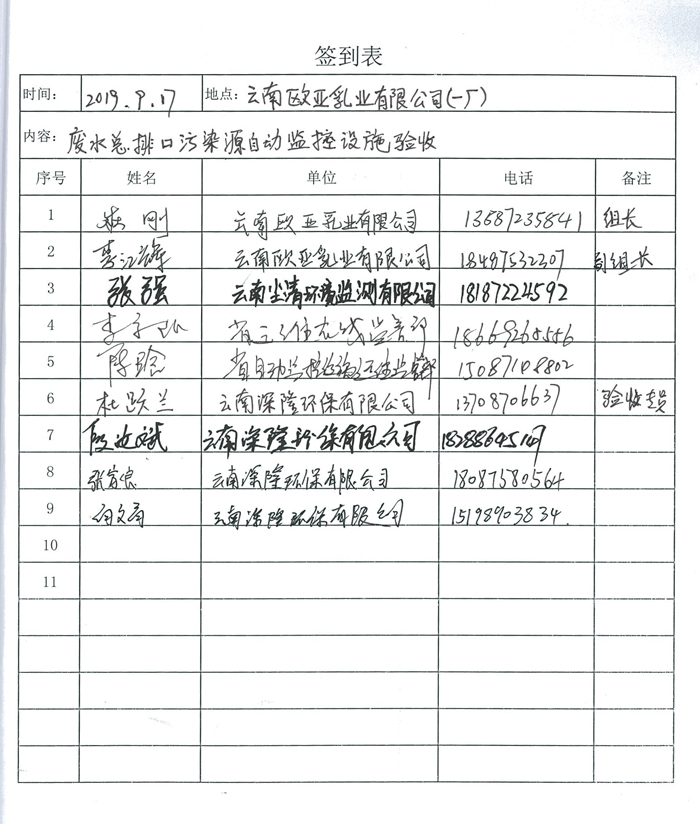 签到表
时间： 2019.9.17 地点：云南欧亚乳业有限公司(一厂)
内容：废水总排口污染源自动监控设施验收
序号 姓名 单位 电话 备注
1 刚 云南欧亚乳业有限公司 13687235841 组长
2 李江 云南欧亚乳业有限公司 18497532307 副组长
3 张强 云南尘清环境监测有限公司 18187224592
4 李 省 18669265556
5 陈 省自动 15087108802
6 杜跃兰 云南深隆环保有限公司 13708706637 验收专员
7 段 斌 云南深隆环保有限公司
8 张 良 云南深隆环保有限公司 18087580564
9 文 云南深隆环保有限公司 15198903834.
10
11